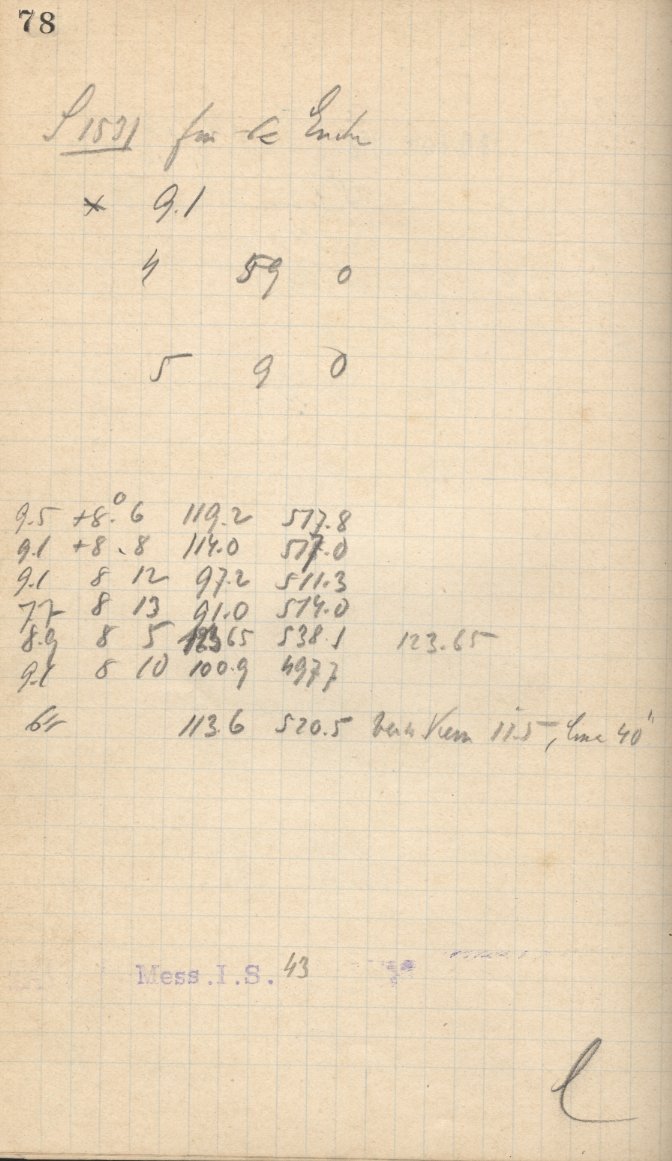 78
S 1531
× 9.1
4 59 0
5 9 0
9.5 +8.° 6 119.2 517.8
9.1 +8 . 8 114.0 517.0
9.1 8 12 97.2 511.3
8 13 91.0 514.0
8.9 8 5 65 538.1 123.65
9.1 8 10 100.9 497.7
113.6 520.5 11.5, 40"
Mess.I.S. 43